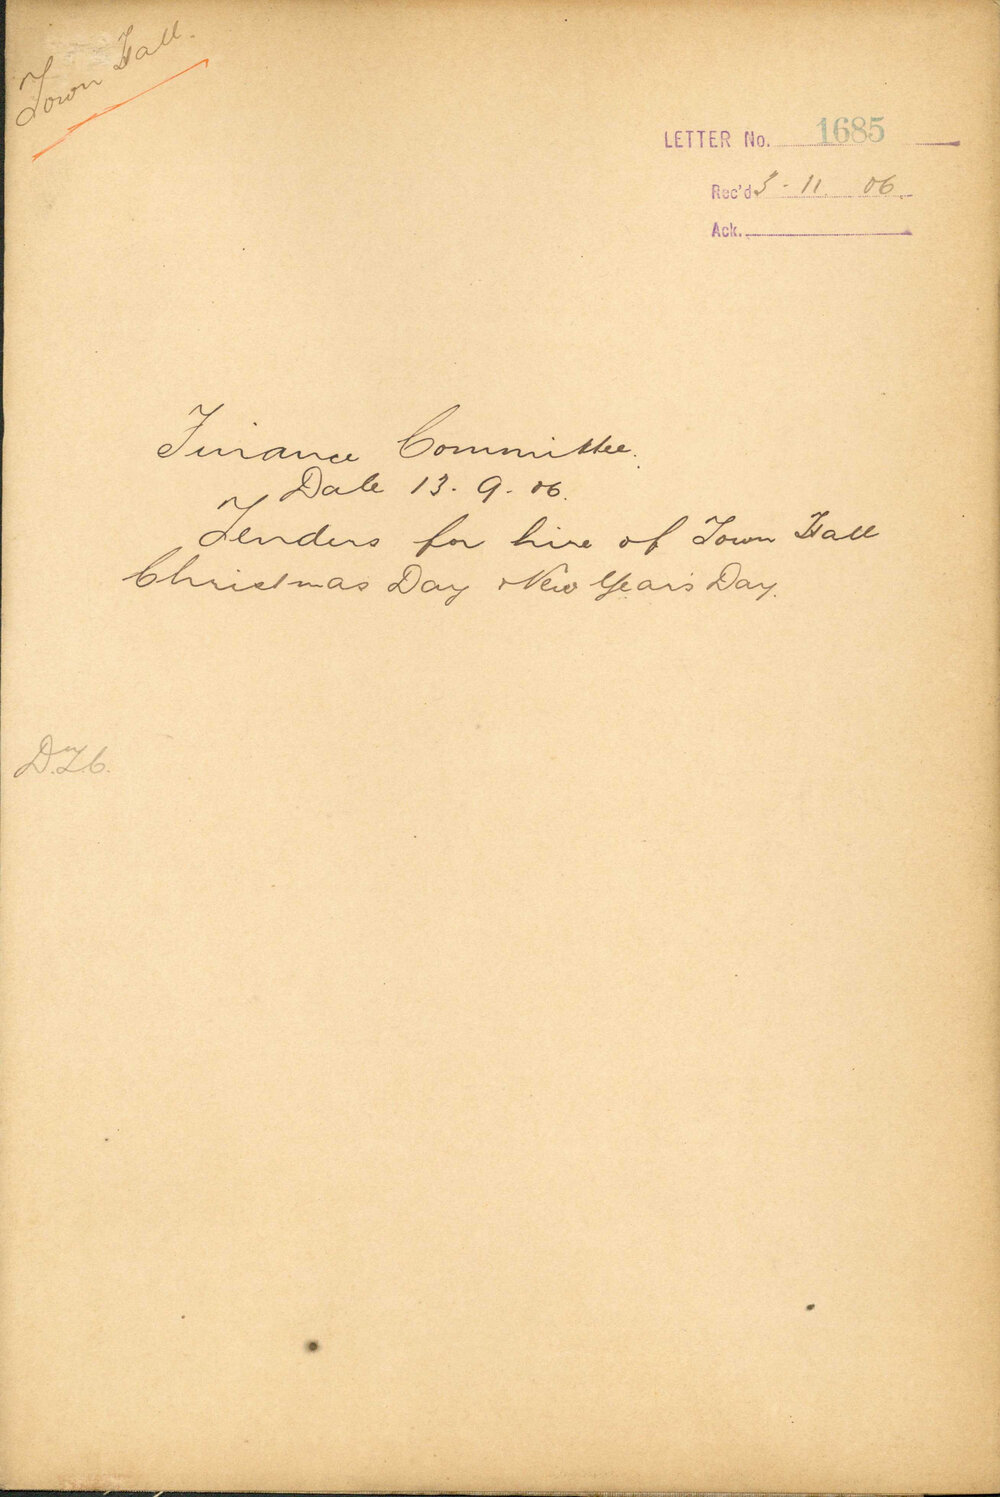 Town Hall.
LETTER No. 1685
Rec'd 3 - 11 06
Ack.
Finance Committee.
Date 13. 9. 06.
Tenders for hire of Town Hall
Christmas Day & New Year's Day.